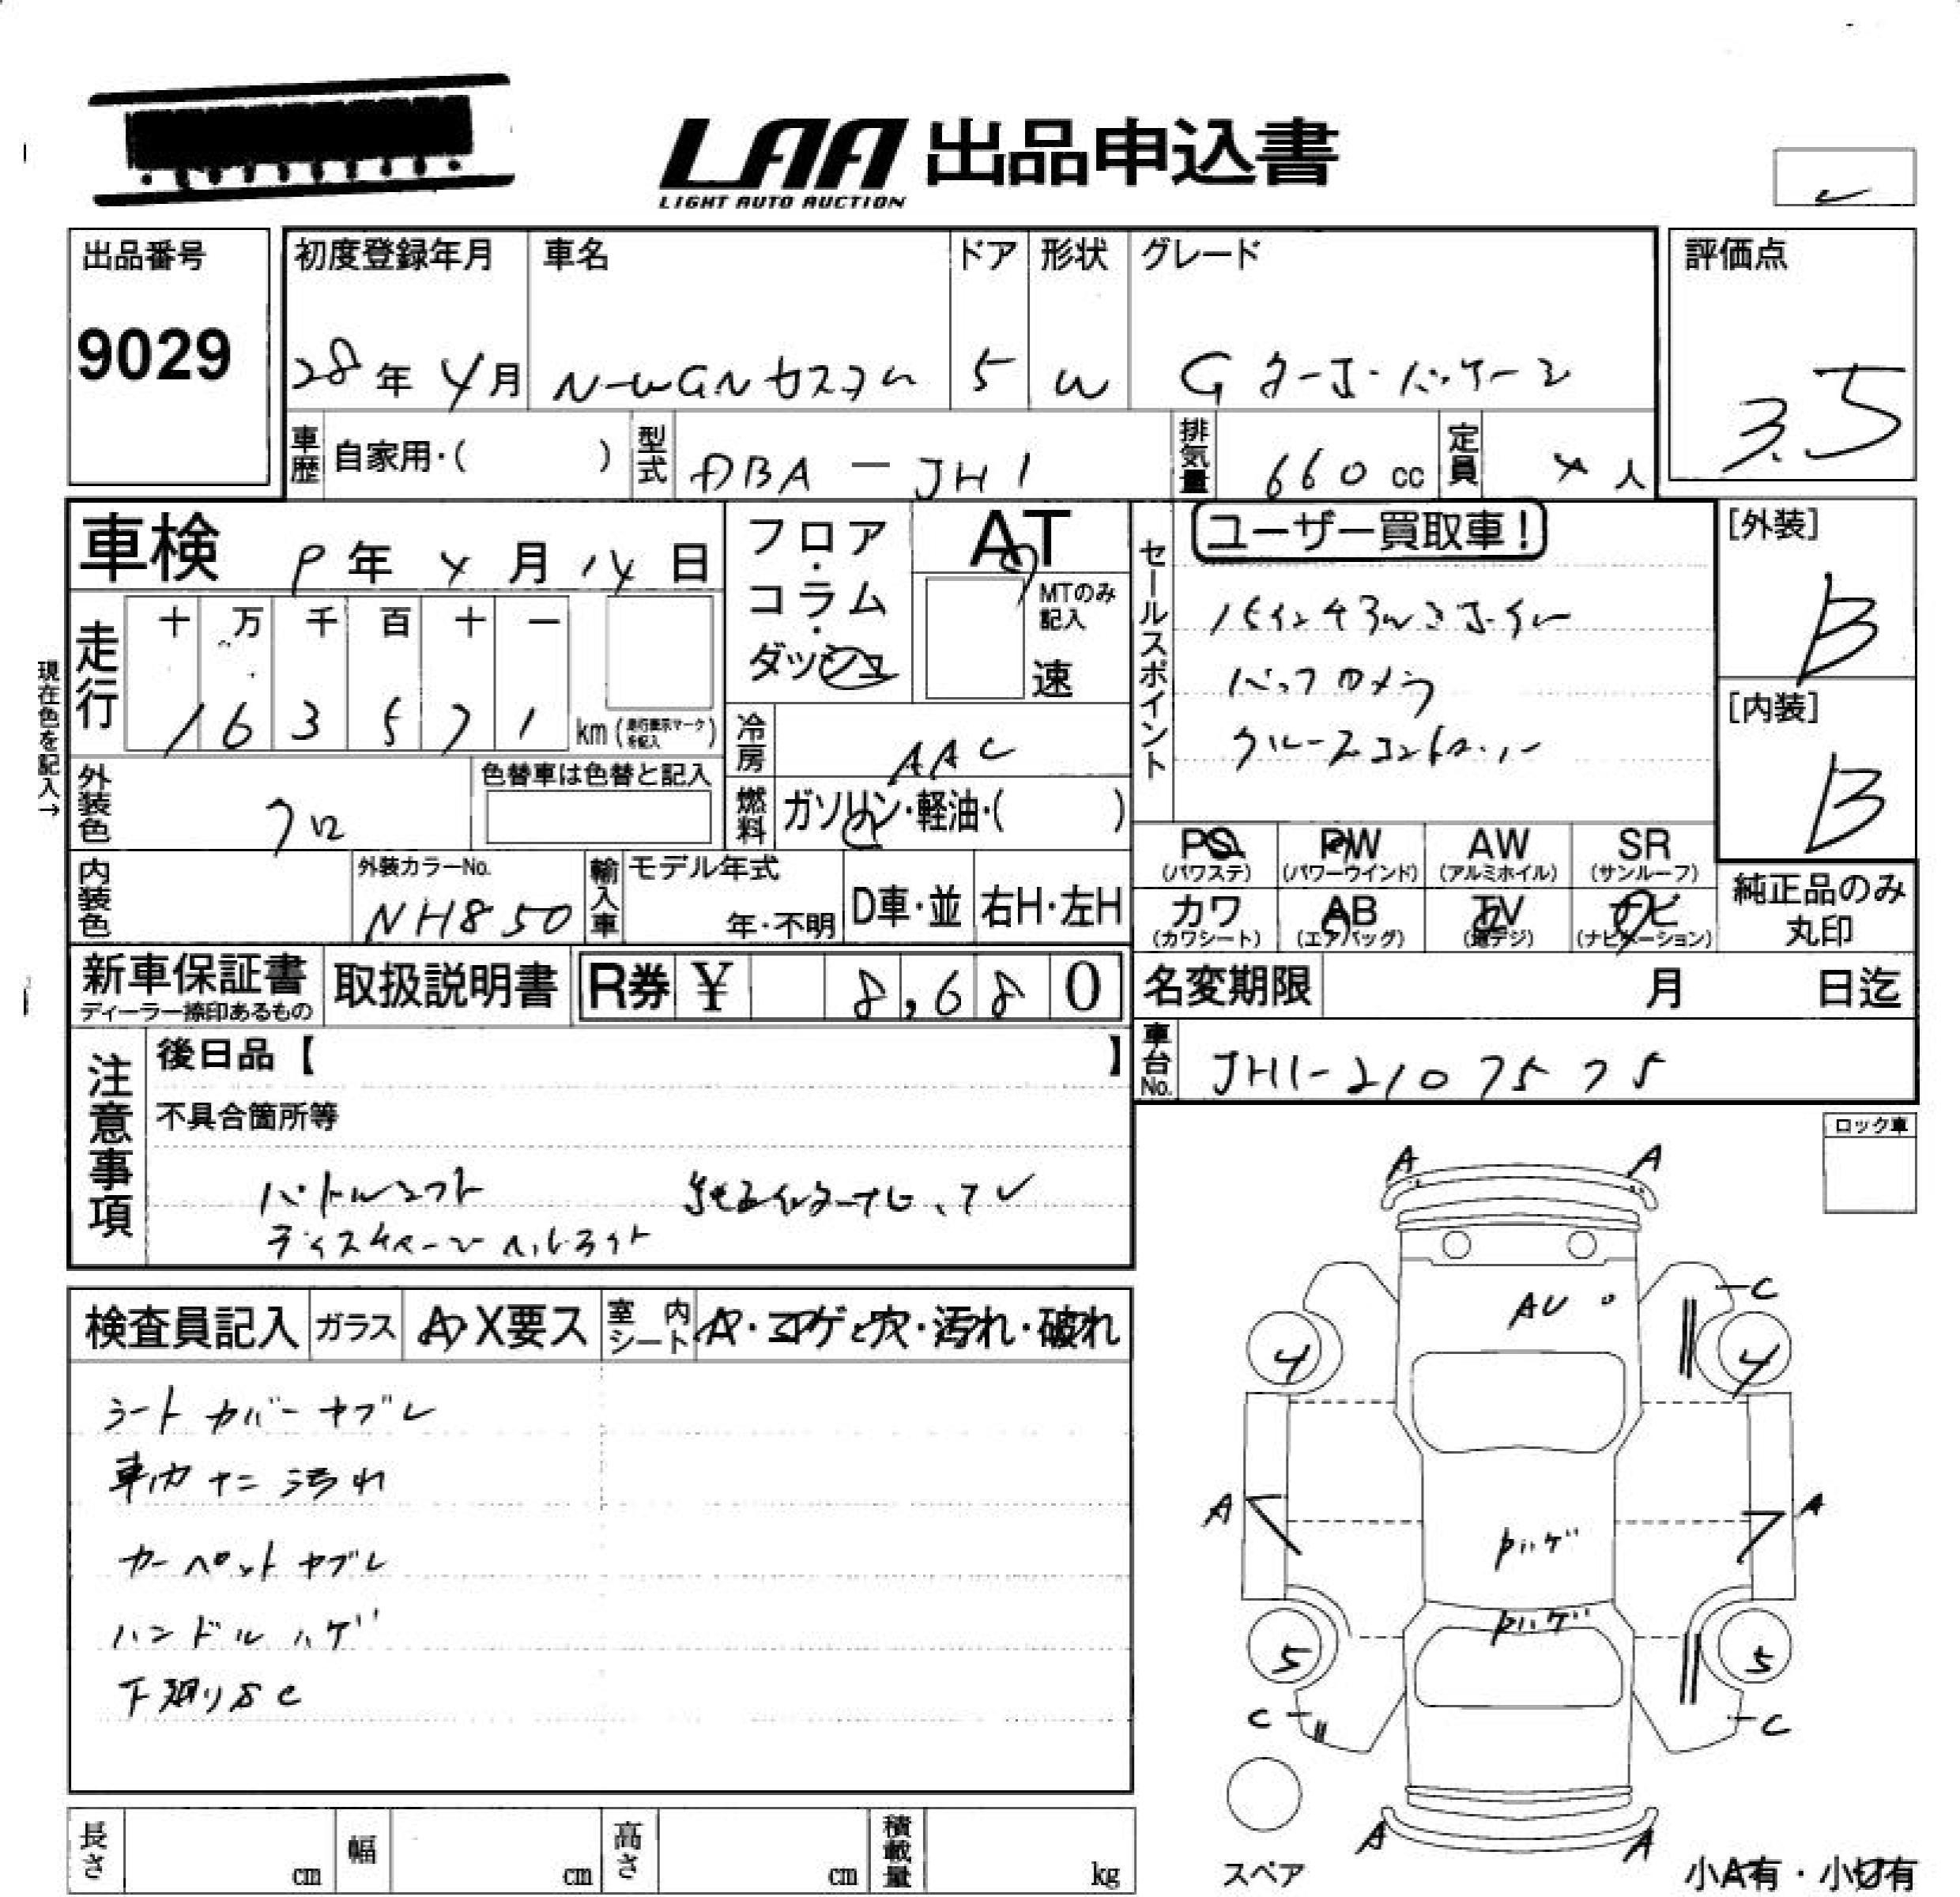 LAA 出品申込書
LIGHT AUTO AUCTION
出品番号
9029
初度登録年月
28年 4月
車名
N-WGNカスタム
ドア
5
形状
W
グレード
G ターボ・パッケージ
評価点
3.5
車歴 自家用・( )
型式 DBA-JH1
排気量 660 cc
定員 4人
車検 9年 4月 14日
フロア・コラム・ダッシュ
AT
MTのみ記入
速
現在色を記入→
走行
十 万 千 百 十 一
1 6 3 5 7 1 km (走行表示マークを記入)
冷房 AAC
燃料 ガソリン・軽油・( )
外装色 クロ
色替車は色替と記入
内装色
外装カラーNo.
NH850
輸入車 モデル年式
年・不明
D車・並
右H・左H
セールスポイント
ユーザー買取車!
15インチアルミホイール
バックカメラ
クルーズコントロール
[外装]
B
[内装]
B
PS (パワステ)
PW (パワーウインド)
AW (アルミホイル)
SR (サンルーフ)
カワ (カワシート)
AB (エアバッグ)
TV (地デジ)
ナビ (ナビゲーション)
純正品のみ丸印
新車保証書
ディーラー捺印あるもの
取扱説明書
R券 ¥ 8,680
名変期限 月 日迄
車台No. JH1-2107575
注意事項
後日品【 】
不具合箇所等
パドルシフト 純正インターナビ、TV
ディスチャージヘッドライト
ロック車
検査員記入
ガラス A・X要ス
室内シート A・コゲ・穴・汚れ・破れ
シートカバーヤブレ
車内キズ汚れ
カーペットヤブレ
ハンドルハゲ
下廻りSC
A A
AU
C
4 4
A A
Pハゲ
Pハゲ
5 5
C C
A A
スペア
小A有・小U有
長さ cm
幅 cm
高さ cm
積載量 kg